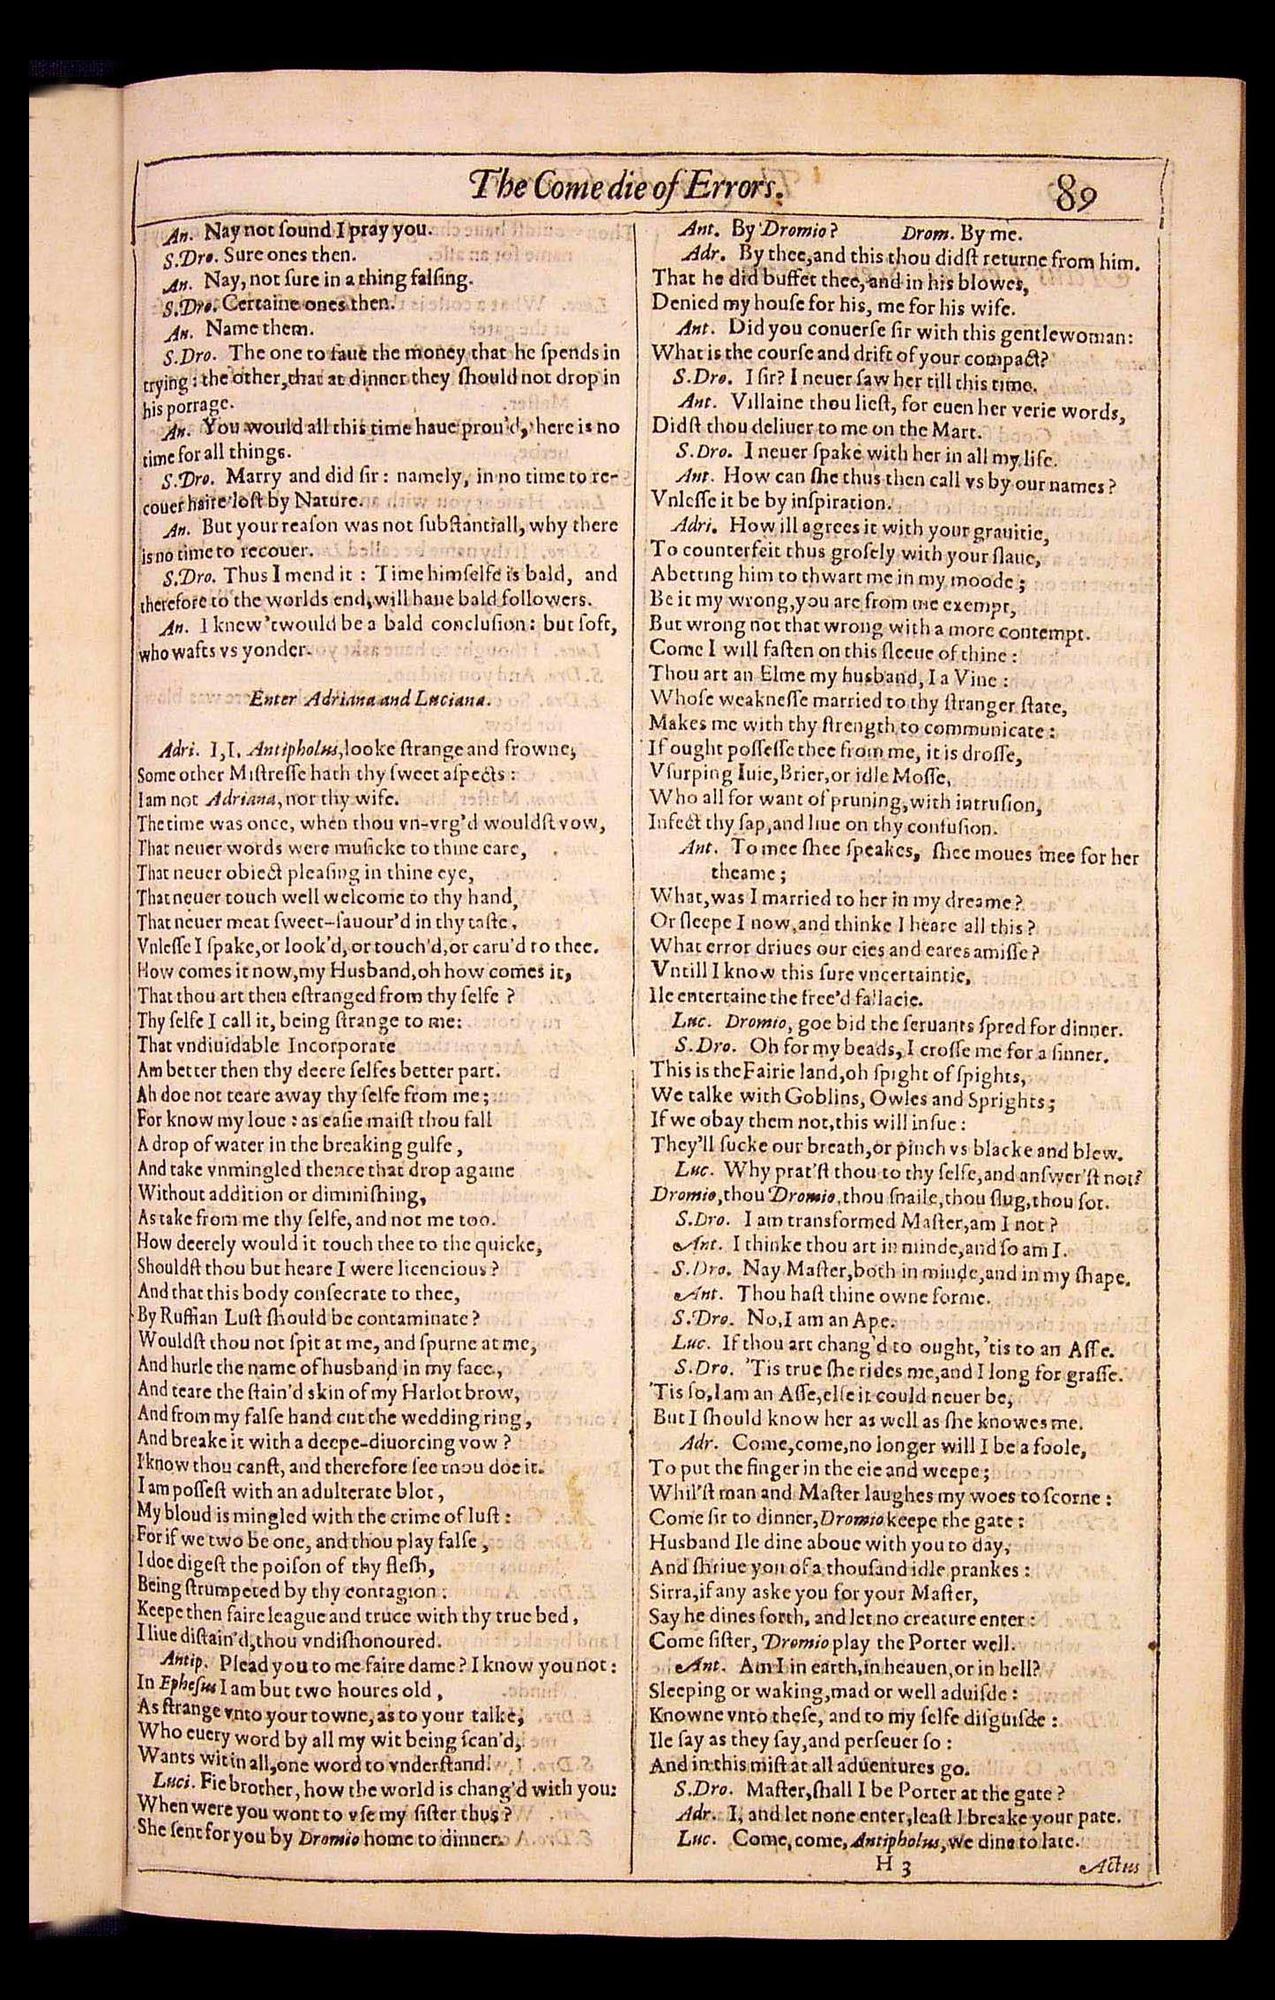 The Comedie of Errors. 89
An. Nay not ſound I pray you.
S.Dro. Sure ones then.
An. Nay, not ſure in a thing falſing.
S.Dro. Certaine ones then.
An. Name them.
S.Dro. The one to ſaue the money that he ſpends in
trying: the other, that at dinner they ſhould not drop in
his porrage.
An. You would all this time haue prou'd, there is no
time for all things.
S.Dro. Marry and did ſir: namely, in no time to re-
couer haire loſt by Nature.
An. But your reaſon was not ſubſtantiall, why there
is no time to recouer.
S.Dro. Thus I mend it: Time himſelfe is bald, and
therefore to the worlds end, will haue bald followers.
An. I knew 'twould be a bald concluſion: but ſoft,
who wafts vs yonder.
Enter Adriana and Luciana.
Adri. I, I, Antipholus, looke ſtrange and frowne,
Some other Miſtreſſe hath thy ſweet aſpects:
I am not Adriana, nor thy wife.
The time was once, when thou vn-vrg'd wouldſt vow,
That neuer words were muſicke to thine eare,
That neuer obiect pleaſing in thine eye,
That neuer touch well welcome to thy hand,
That neuer meat ſweet-ſauour'd in thy taſte,
Vnleſſe I ſpake, or look'd, or touch'd, or caru'd to thee.
How comes it now, my Husband, oh how comes it,
That thou art then eſtranged from thy ſelfe?
Thy ſelfe I call it, being ſtrange to me:
That vndiuidable Incorporate
Am better then thy deere ſelfes better part.
Ah doe not teare away thy ſelfe from me;
For know my loue: as eaſie maiſt thou fall
A drop of water in the breaking gulfe,
And take vnmingled thence that drop againe
Without addition or diminiſhing,
As take from me thy ſelfe, and not me too.
How deerely would it touch thee to the quicke,
Shouldſt thou but heare I were licencious?
And that this body conſecrate to thee,
By Ruffian Luſt ſhould be contaminate?
Wouldſt thou not ſpit at me, and ſpurne at me,
And hurle the name of husband in my face,
And teare the ſtain'd skin of my Harlot brow,
And from my falſe hand cut the wedding ring,
And breake it with a deepe-diuorcing vow?
I know thou canſt, and therefore ſee thou doe it.
I am poſſeſt with an adulterate blot,
My bloud is mingled with the crime of luſt:
For if we two be one, and thou play falſe,
I doe digeſt the poiſon of thy fleſh,
Being ſtrumpeted by thy contagion:
Keepe then faire league and truce with thy true bed,
I liue diſtain'd, thou vndiſhonoured.
Antip. Plead you to me faire dame? I know you not:
In Epheſus I am but two houres old,
As ſtrange vnto your towne, as to your talke,
Who euery word by all my wit being ſcan'd,
Wants wit in all, one word to vnderſtand.
Luci. Fie brother, how the world is chang'd with you:
When were you wont to vſe my ſiſter thus?
She ſent for you by Dromio home to dinner.
Ant. By Dromio? Drom. By me.
Adr. By thee, and this thou didſt returne from him.
That he did buffet thee, and in his blowes,
Denied my houſe for his, me for his wife.
Ant. Did you conuerſe ſir with this gentlewoman:
What is the courſe and drift of your compact?
S.Dro. I ſir? I neuer ſaw her till this time.
Ant. Villaine thou lieſt, for euen her verie words,
Didſt thou deliuer to me on the Mart.
S.Dro. I neuer ſpake with her in all my life.
Ant. How can ſhe thus then call vs by our names?
Vnleſſe it be by inſpiration.
Adri. How ill agrees it with your grauitie,
To counterfeit thus groſely with your ſlaue,
Abetting him to thwart me in my moode;
Be it my wrong, you are from me exempt,
But wrong not that wrong with a more contempt.
Come I will faſten on this ſleeue of thine:
Thou art an Elme my husband, I a Vine:
Whoſe weakneſſe married to thy ſtranger ſtate,
Makes me with thy ſtrength to communicate:
If ought poſſeſſe thee from me, it is droſſe,
Vſurping Iuie, Brier, or idle Moſſe,
Who all for want of pruning, with intruſion,
Infect thy ſap, and liue on thy confuſion.
Ant. To mee ſhee ſpeakes, ſhee moues mee for her
theame;
What, was I married to her in my dreame?
Or ſleepe I now, and thinke I heare all this?
What error driues our eies and eares amiſſe?
Vntill I know this ſure vncertaintie,
Ile entertaine the free'd fallacie.
Luc. Dromio, goe bid the ſeruants ſpred for dinner.
S.Dro. Oh for my beads, I croſſe me for a ſinner.
This is the Fairie land, oh ſpight of ſpights,
We talke with Goblins, Owles and Sprights;
If we obay them not, this will inſue:
They'll ſucke our breath, or pinch vs blacke and blew.
Luc. Why prat'ſt thou to thy ſelfe, and anſwer'ſt not?
Dromio, thou Dromio, thou ſnaile, thou ſlug, thou ſot.
S.Dro. I am transformed Maſter, am I not?
Ant. I thinke thou art in minde, and ſo am I.
S.Dro. Nay Maſter, both in minde, and in my ſhape.
Ant. Thou haſt thine owne forme.
S.Dro. No, I am an Ape.
Luc. If thou art chang'd to ought, 'tis to an Aſſe.
S.Dro. 'Tis true ſhe rides me, and I long for graſſe.
'Tis ſo, I am an Aſſe, elſe it could neuer be,
But I ſhould know her as well as ſhe knowes me.
Adr. Come, come, no longer will I be a foole,
To put the finger in the eie and weepe;
Whil'ſt man and Maſter laughes my woes to ſcorne:
Come ſir to dinner, Dromio keepe the gate:
Husband Ile dine aboue with you to day,
And ſhriue you of a thouſand idle prankes:
Sirra, if any aske you for your Maſter,
Say he dines forth, and let no creature enter:
Come ſiſter, Dromio play the Porter well.
Ant. Am I in earth, in heauen, or in hell?
Sleeping or waking, mad or well aduiſde:
Knowne vnto theſe, and to my ſelfe diſguiſde:
Ile ſay as they ſay, and perſeuer ſo:
And in this miſt at all aduentures go.
S.Dro. Maſter, ſhall I be Porter at the gate?
Adr. I, and let none enter, leaſt I breake your pate.
Luc. Come, come, Antipholus, we dine to late.
H 3 Actus